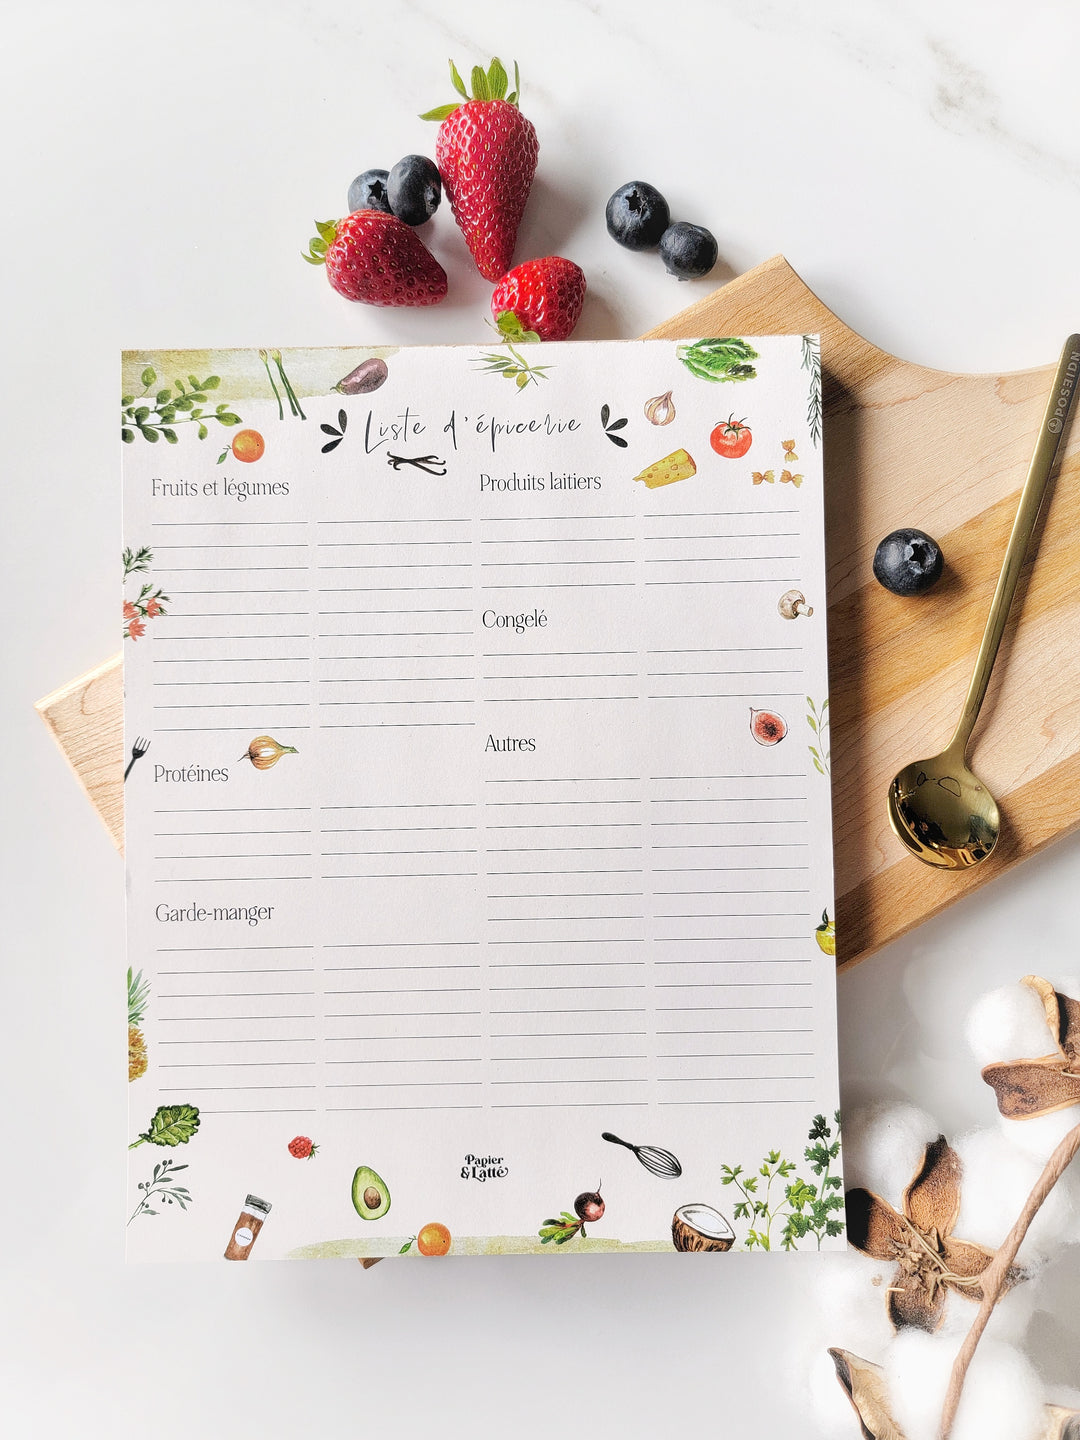 Liste d'épicerie
Fruits et légumes
Produits laitiers
Congelé
Autres
Protéines
Garde-manger
Papier
& Latté